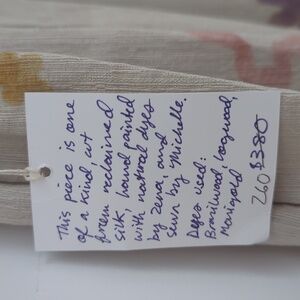 This piece is one
of a kind, cut
from reclaimed
silk, hand painted
with natural dyes
by zena, and
sewn by Michelle.
Dyes used:
Brazilwood, Logwood,
Marigold $380
260